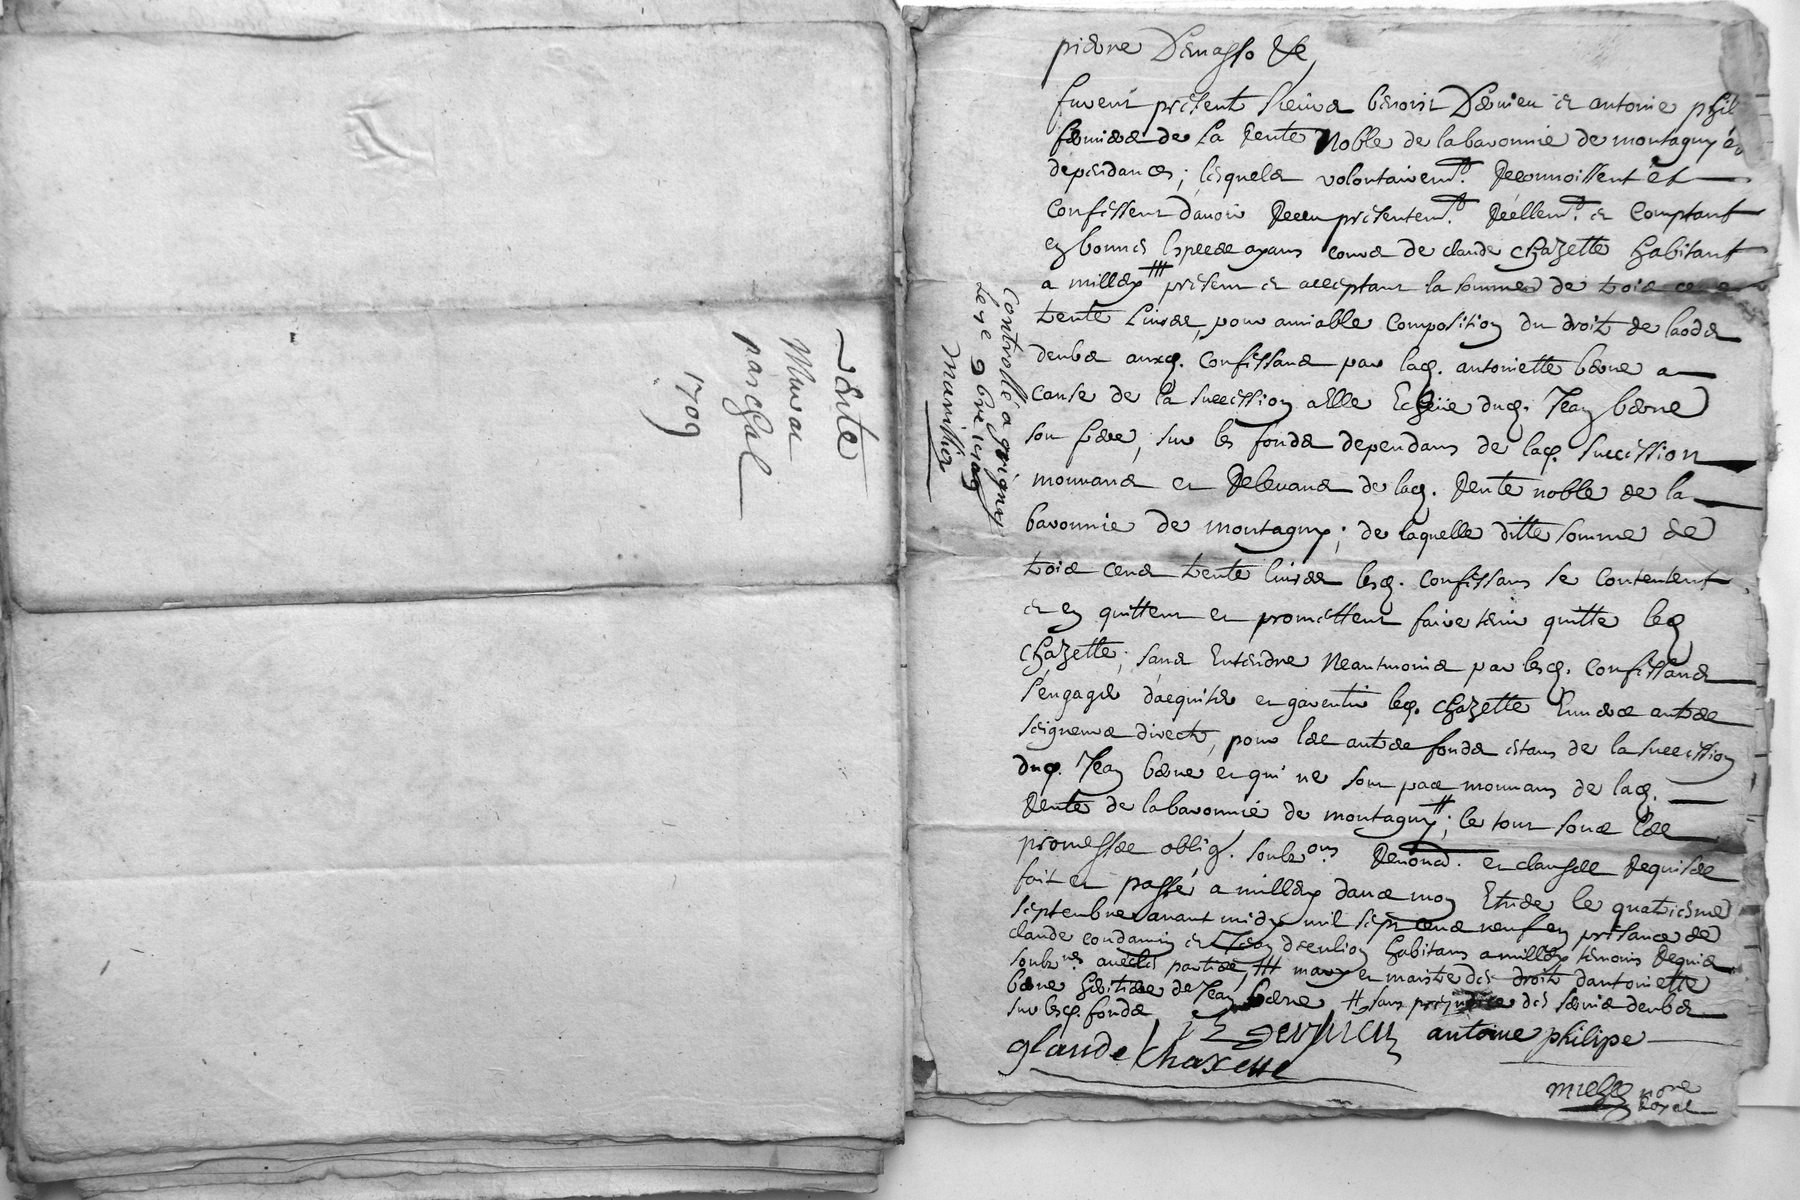 vente
Murat
paschal
1709
Controllé a grigny
le 9e 7bre 1709
pierre Denasse &c
furent présent sieurs benoist Dervieu et antoine phil
fermiers de La Rente Noble de la baronnie de montagny et
dépendances; lesquels volontairemt. Reconnoissent et
Confessent d'avoir Receu présentemt. Réellemt. et Comptant
en bonnes Especes ayans cours de claude chazette habitant
a millery ttt présent et acceptant la somme de trois cens
trente Livres, pour amiable Composition du droit de laods
deubs auxq. Confessans par laq. antoinette berne a
cause de la succession a Elle Echeüe duq. Jean berne
son frere, sur les fonds dependans de laq. succession
mouvans et Relevans de laq. Rente noble de la
baronnie de montagny; de laquelle ditte somme de
trois cens trente livres lesq. Confessans se Contentent
et en quittent et promettent faire tenir quitte leq
chazette; sans Entendre Neantmoins par lesq. Confessans
s'engager d'acquiter et garentir leq. chazette Envers autres
seigneurs directs, pour les autres fonds estans de la succession
duq. Jean berne et qui ne sont pas mouvans de laq.
Rente de la baronnie de montagny tt; le tout sous les
promesses oblig. soubmons. Renond. et clauses Requises
fait et passé a millery dans mon Etude le quatriesme
septembre avant midy mil sept cens neuf en présance de
claude condamin et Jean habitans a millery temoins Requis
soubnés. avec les parties, ttt mary et maistre des droits d'antoinette
berne heritiere de Jean berne tt sans prejudice des servis deubs
sur lesq. fonds
Dervieu antoine philipe
glaude Chazette
nore
Royal